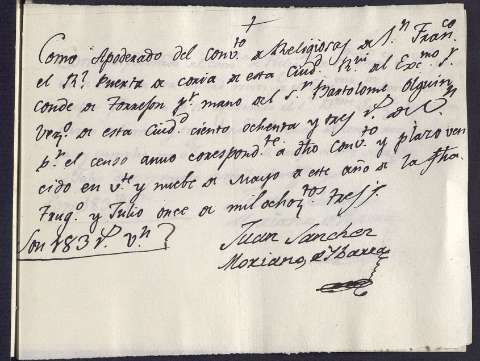 Como Apoderado del Conv.to de Religiosas de S.n Fran.co
el R.l Puerta de Coria de esta Ciud.d R.vi del Ex.mo S.
Conde de Torrejon p.r mano del S.r Bartolome Olguin
Vez.o de esta Ciud.d ciento ochenta y tres r.s de V.n
p.r el censo anuo correspond.te a dho Conv.to y plazo ven
cido en v.te y nuebe de Mayo de este año de la fha
Trug.o y Julio once de mil ochoz.tos tres
Son 183 r.s v.n
Juan Sanchez
Moriano, de Ybarra